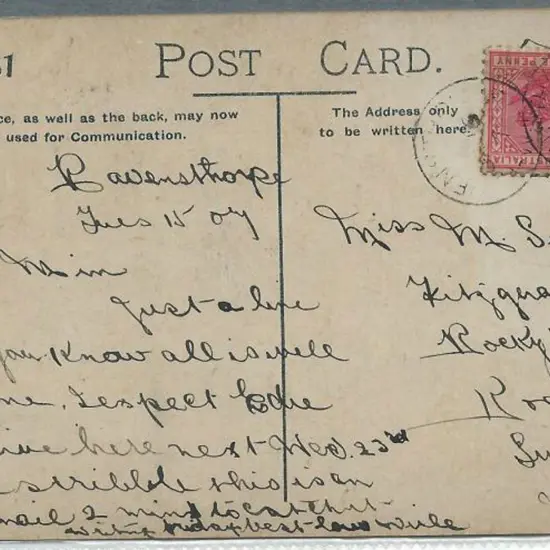 51
POST CARD.
ce, as well as the back, may now
used for Communication.
The Address only
to be written here.
Ravensthorpe
Tues 15 07
Min
Just a line
you know all is well
me, I expect Edie
ive here next Wed. 23rd
scribble this is an
mail 2 mins to catch it
with best love
Miss M. S
Fitzgera
Rocky
Ro